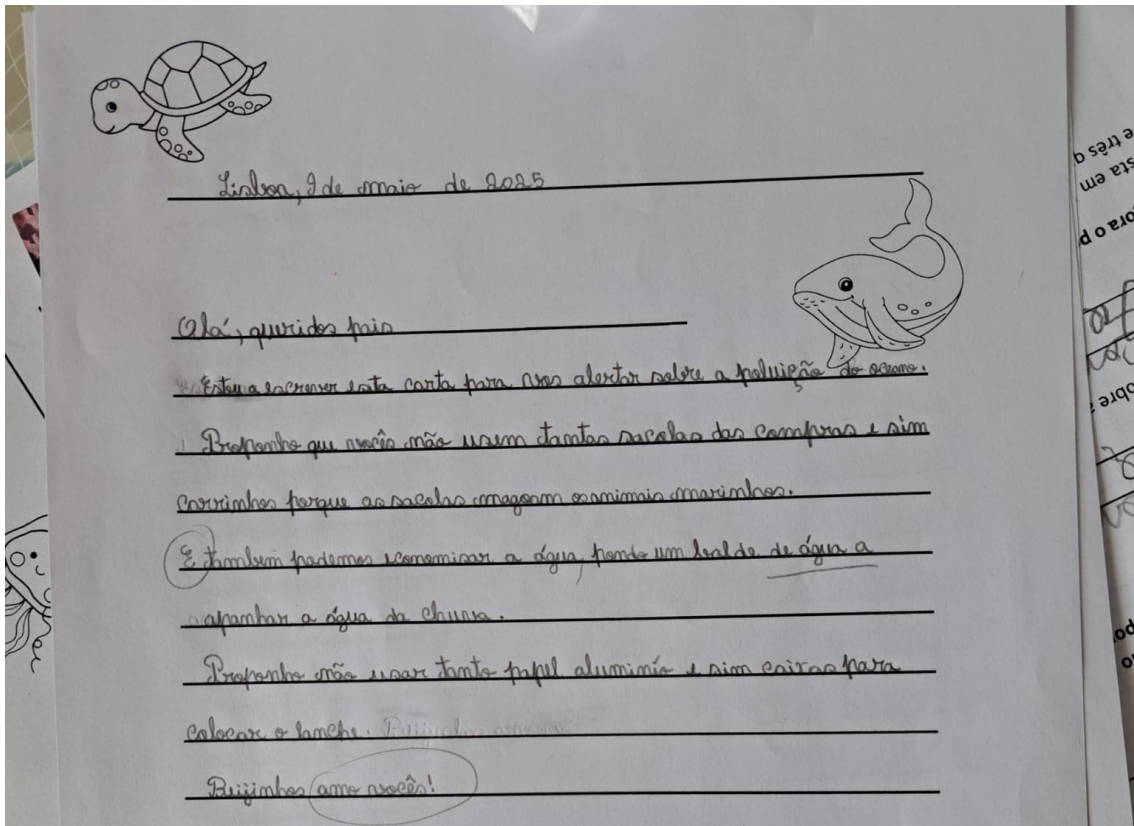 Lisboa, 9 de maio de 2025
Olá, queridos pais
Estou a escrever esta carta para vos alertar sobre a poluição do oceano.
Proponho que vocês não usem tantas sacolas das compras e sim
carrinhos porque as sacolas magoam os animais marinhos.
E também podemos economizar a água, pondo um balde de água a
apanhar a água da chuva.
Proponho não usar tanto papel aluminío e sim caixas para
colocar o lanche.
Beijinhos amo vocês!
e três q
sta em
ora o p
obre a